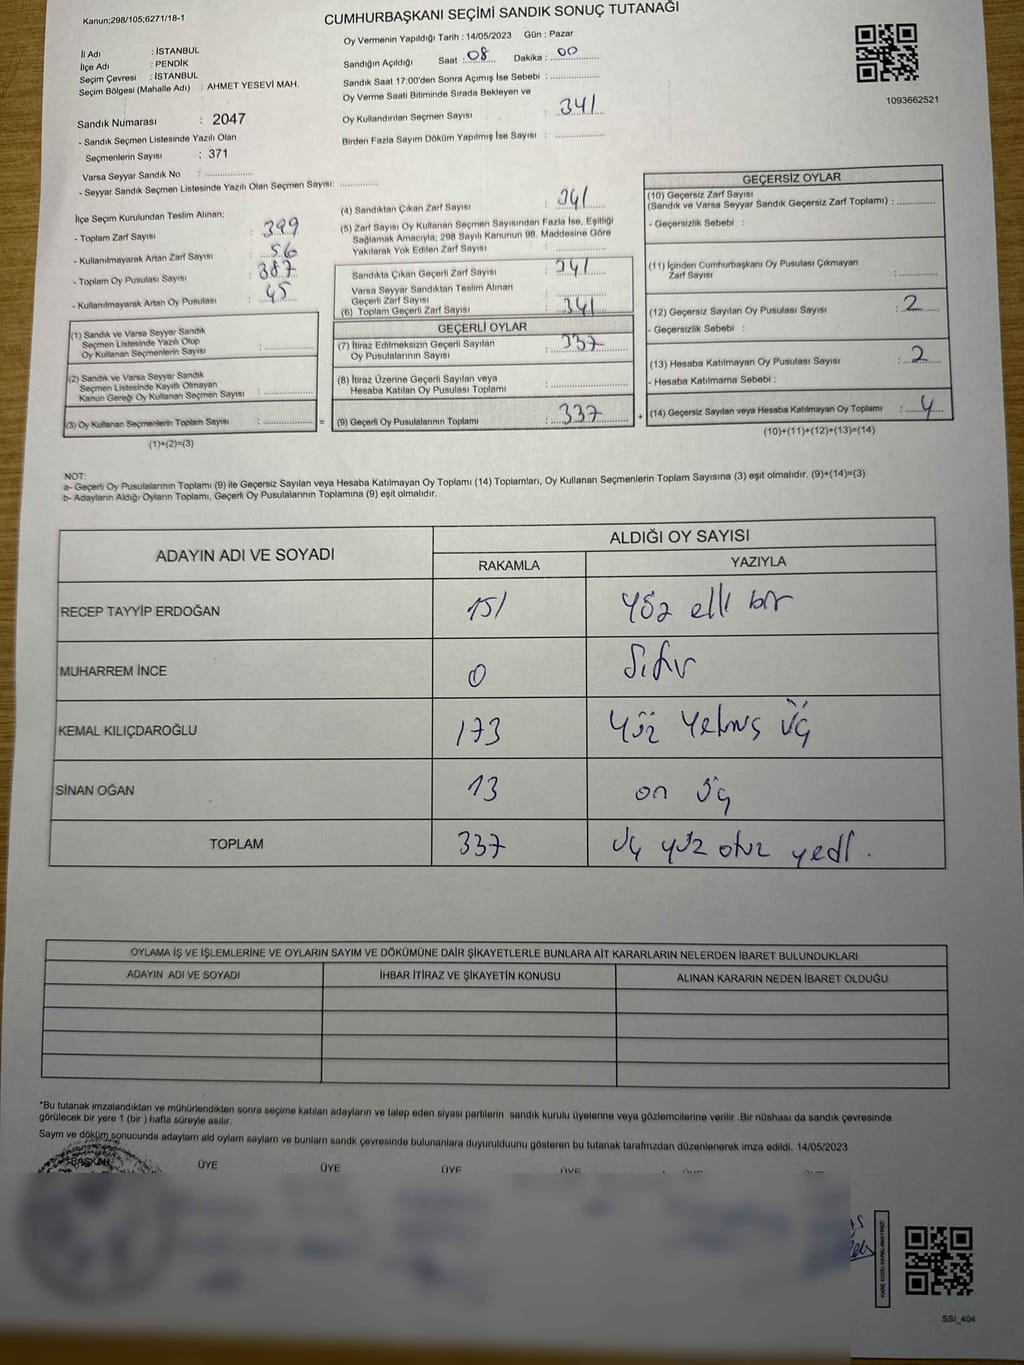 Kanun;298/105;6271/18-1
CUMHURBAŞKANI SEÇİMİ SANDIK SONUÇ TUTANAĞI
İl Adı : İSTANBUL
İlçe Adı : PENDİK
Seçim Çevresi : İSTANBUL
Seçim Bölgesi (Mahalle Adı) : AHMET YESEVİ MAH.
Sandık Numarası : 2047
- Sandık Seçmen Listesinde Yazılı Olan
Seçmenlerin Sayısı : 371
Varsa Seyyar Sandık No : ..................
- Seyyar Sandık Seçmen Listesinde Yazılı Olan Seçmen Sayısı: ..............
Oy Vermenin Yapıldığı Tarih : 14/05/2023 Gün : Pazar
Sandığın Açıldığı Saat : 08 Dakika : 00
Sandık Saat 17:00'den Sonra Açımış İse Sebebi : ..................
Oy Verme Saati Bitiminde Sırada Bekleyen ve
Oy Kullandırılan Seçmen Sayısı : 341
Birden Fazla Sayım Döküm Yapılmış İse Sayısı : ..................
1093662521
İlçe Seçim Kurulundan Teslim Alınan;
- Toplam Zarf Sayısı : 399
- Kullanılmayarak Artan Zarf Sayısı : 56
- Toplam Oy Pusulası Sayısı : 387
- Kullanılmayarak Artan Oy Pusulası : 45
(1) Sandık ve Varsa Seyyar Sandık
Seçmen Listesinde Yazılı Olup
Oy Kullanan Seçmenlerin Sayısı : ..................
(2) Sandık ve Varsa Seyyar Sandık
Seçmen Listesinde Kayıtlı Olmayan
Kanun Gereği Oy Kullanan Seçmen Sayısı : ..................
(3) Oy Kullanan Seçmenlerin Toplam Sayısı : .................. =
(1)+(2)=(3)
(4) Sandıktan Çıkan Zarf Sayısı : 341
(5) Zarf Sayısı Oy Kullanan Seçmen Sayısından Fazla İse, Eşitliği
Sağlamak Amacıyla; 298 Sayılı Kanunun 98. Maddesine Göre
Yakılarak Yok Edilen Zarf Sayısı : ..................
Sandıkta Çıkan Geçerli Zarf Sayısı : 341
Varsa Seyyar Sandıktan Teslim Alınan
Geçerli Zarf Sayısı : ..................
(6) Toplam Geçerli Zarf Sayısı : 341
GEÇERLİ OYLAR
(7) İtiraz Edilmeksizin Geçerli Sayılan
Oy Pusulalarının Sayısı : 337
(8) İtiraz Üzerine Geçerli Sayılan veya
Hesaba Katılan Oy Pusulası Toplamı : ..................
(9) Geçerli Oy Pusulalarının Toplamı : 337 +
GEÇERSİZ OYLAR
(10) Geçersiz Zarf Sayısı
(Sandık ve Varsa Seyyar Sandık Geçersiz Zarf Toplamı) : ............
- Geçersizlik Sebebi :
(11) İçinden Cumhurbaşkanı Oy Pusulası Çıkmayan
Zarf Sayısı : ............
(12) Geçersiz Sayılan Oy Pusulası Sayısı : 2
- Geçersizlik Sebebi :
(13) Hesaba Katılmayan Oy Pusulası Sayısı : 2
- Hesaba Katılmama Sebebi :
(14) Geçersiz Sayılan veya Hesaba Katılmayan Oy Toplamı : 4
(10)+(11)+(12)+(13)=(14)
NOT:
a- Geçerli Oy Pusulalarının Toplamı (9) ile Geçersiz Sayılan veya Hesaba Katılmayan Oy Toplamı (14) Toplamları, Oy Kullanan Seçmenlerin Toplam Sayısına (3) eşit olmalıdır. (9)+(14)=(3)
b- Adayların Aldığı Oyların Toplamı, Geçerli Oy Pusulalarının Toplamına (9) eşit olmalıdır.
ADAYIN ADI VE SOYADI
ALDIĞI OY SAYISI
RAKAMLA YAZIYLA
RECEP TAYYİP ERDOĞAN 151 Yüz elli bir
MUHARREM İNCE 0 Sıfır
KEMAL KILIÇDAROĞLU 173 Yüz Yetmiş üç
SİNAN OĞAN 13 on üç
TOPLAM 337 üç yüz otuz yedi.
OYLAMA İŞ VE İŞLEMLERİNE VE OYLARIN SAYIM VE DÖKÜMÜNE DAİR ŞİKAYETLERLE BUNLARA AİT KARARLARIN NELERDEN İBARET BULUNDUKLARI
ADAYIN ADI VE SOYADI İHBAR İTİRAZ VE ŞİKAYETİN KONUSU ALINAN KARARIN NEDEN İBARET OLDUĞU
*Bu tutanak imzalandıktan ve mühürlendikten sonra seçime katılan adayların ve talep eden siyasi partilerin sandık kurulu üyelerine veya gözlemcilerine verilir .Bir nüshası da sandık çevresinde
görülecek bir yere 1 (bir ) hafta süreyle asılır.
Sayım ve döküm sonucunda adayların ald oylam saylam ve bunlarn sandk çevresinde bulunanlara duyurulduunu gösteren bu tutanak tarafmzdan düzenlenerek imza edildi. 14/05/2023
BAŞKAN ÜYE ÜYE ÜYE ÜYE
KARE KODU KARALAMAYINIZ!
SSI_404